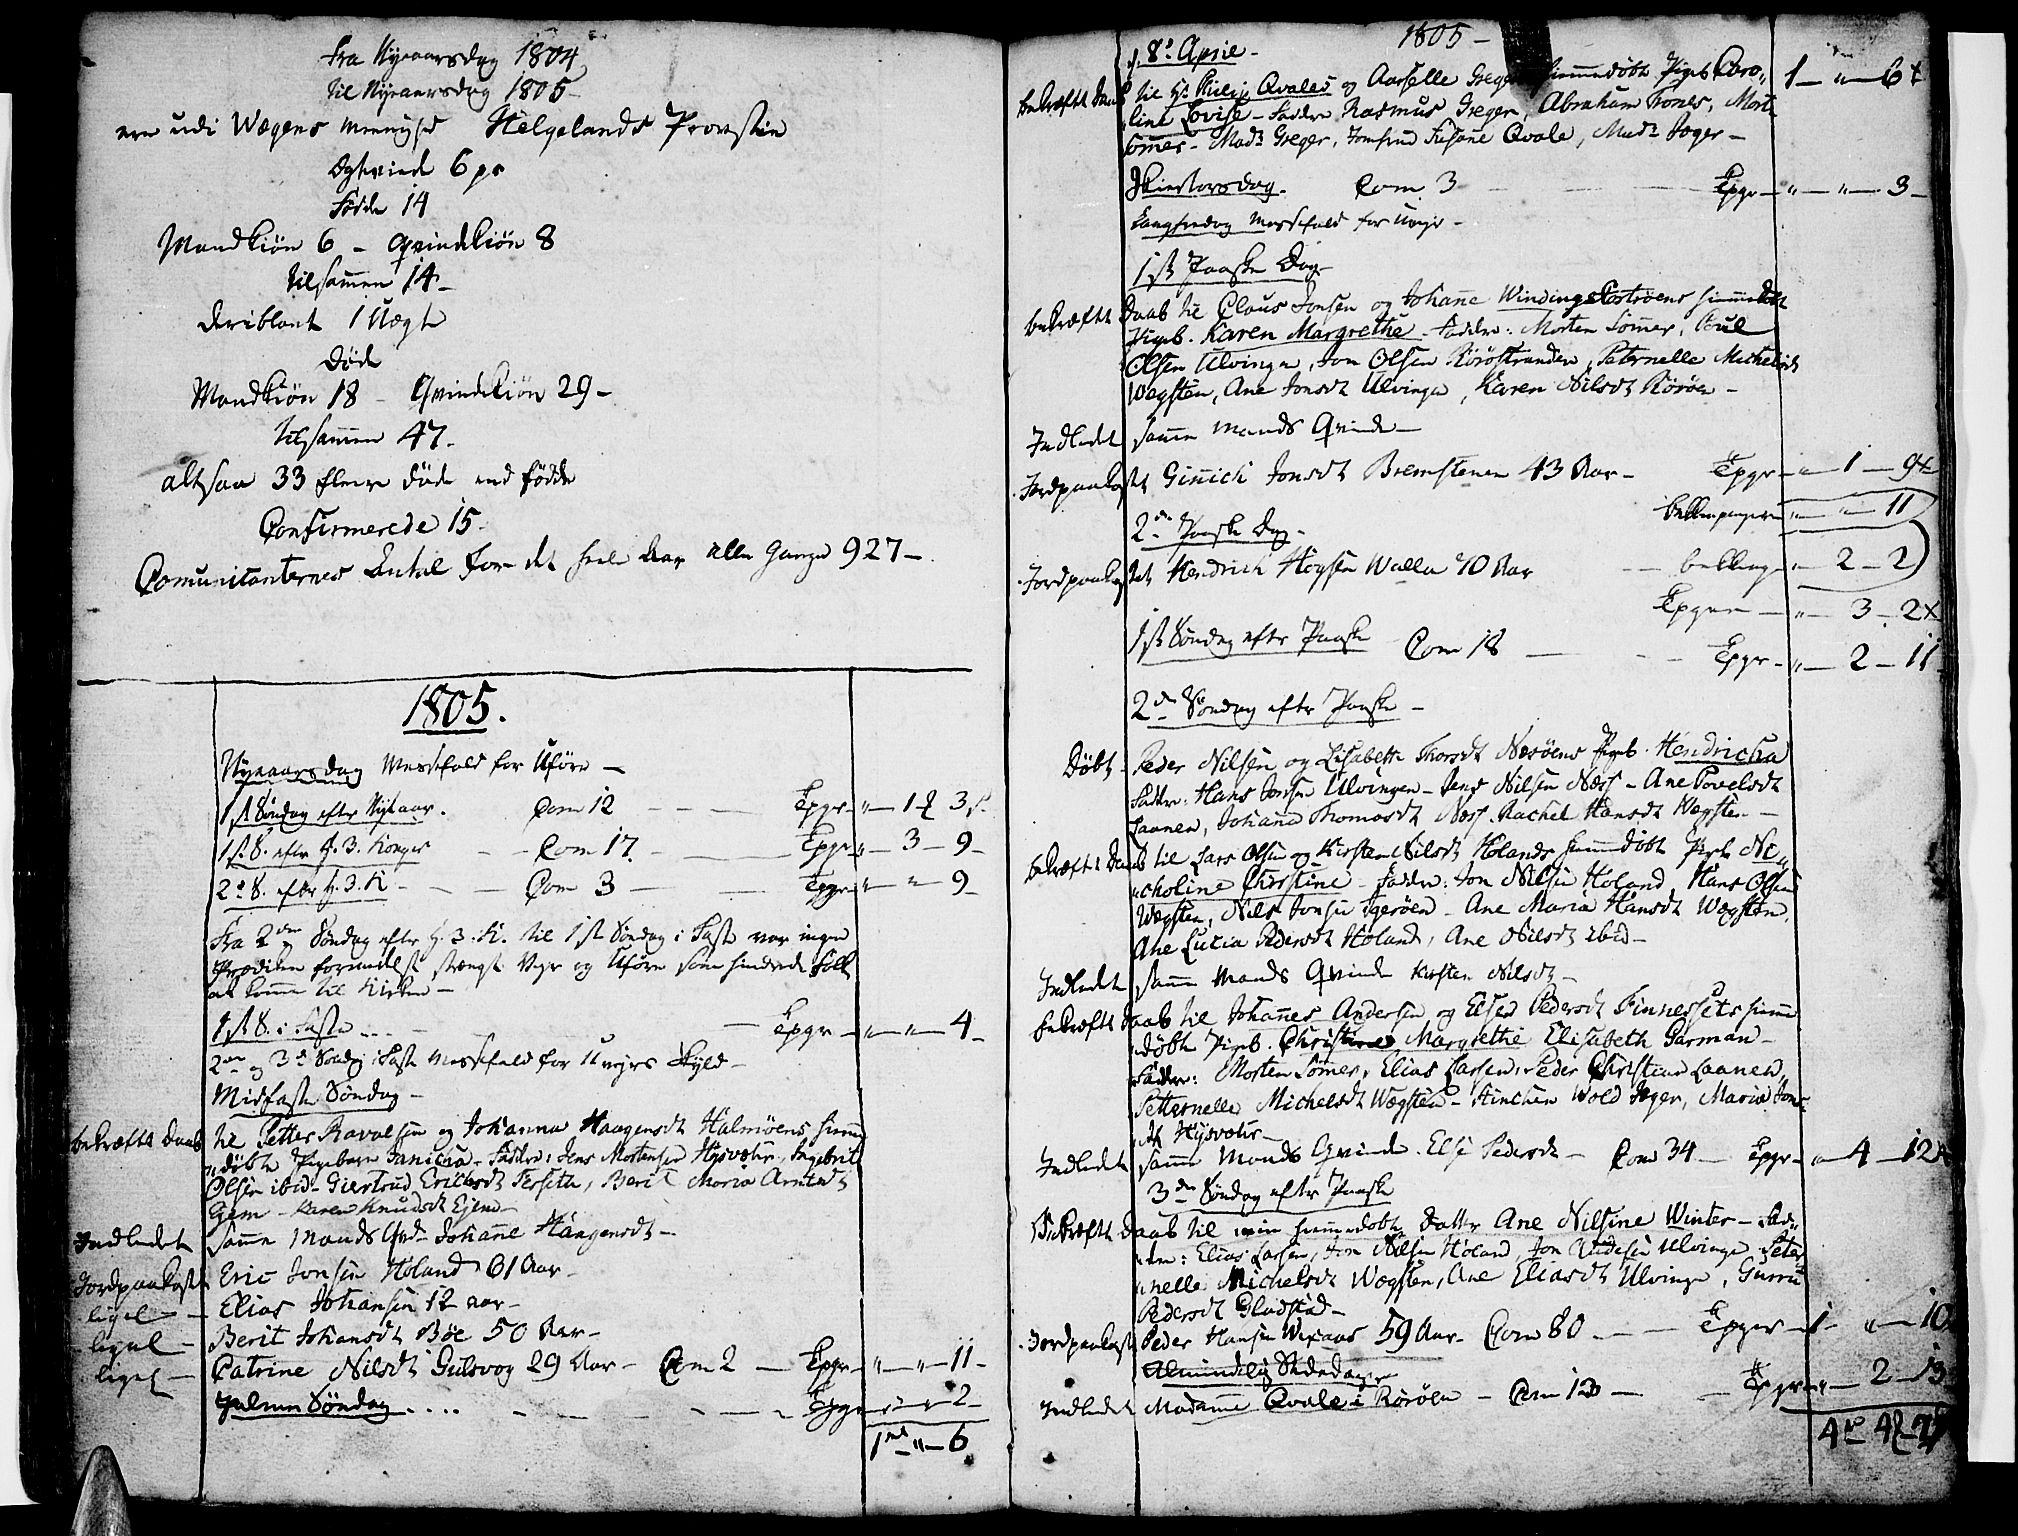 Fra Nyeaarsdag 1804
til Nyeaarsdag 1805
ere udi Wægens Menighed Helgelands Provstie
Ægteviede 6 pr
Fødde 14
Mandkiøn 6 – Qvindekiøn 8
tilsamen 14 –
deriblant 1 Uægte
Døde
Mandkiøn 18 – Qvindekiøn 29 –
tilsamen 47 –
altsaa 33 fleere døde end fødde
Confirmerede 15 –
Comunicanternes Antal for det heele Aar alle Gange 927 –
1805.
Nyeaarsdag Messefald for Uføre –
1st Søndag efter Nyt aar. Com 12 – – – 3
1st S. efter H. 3. Konger – – Com 17 – – 3 – 9 –
2d S. efter H. 3. K – – – Com 3 – – 9 –
Fra 2den Søndag efter H. 3. K. til 1st Søndag i Faste var ingen
Prædiken formedelst strengt Veyr og Uføre som hindrede Folk
at komme til Kirken –
1st S. i Faste – – – 4 –
2den og 3d Søndag i Faste Messefald for Uveyrs Skyld –
Midfaste Søndag –
bekræftet Daab til Petter Ravalsen og Johanna Haagensdt Halmøens hiemme
døbte Pigebarn Janicha – Faddre: Jens Mortensen Hysvær, Ingebrit
Olsen ibid – Giertrud Ericksdt Terseth, Berit Maria Arntsdt
Gjem – Karen Knudsdt Gjem –
Indledet samme Mands Qvd. Johanne Haagensdt –
Jordpaakastet Eric Jonsen Høland 61 Aar –
ligel – Elias Johansen 12 aar –
ligel – Berit Johansdt Bøe 50 Aar –
ligel – Catrine Nilsdt Gulsvog 29 Aar – Com 2 – – 11 –
Palmen Søndag . . . . – – – 2 –
1 – " – 6
1805 –
d. 8de April –
bekræftet Daab til Hr Philip Qvales og Aarselle hiemmedøbte Pigeb. Caro,,
line Lovise – Faddre Rasmus Greger, Abraham Trones, Mort.
Sømer – Mad. Greger, Jomfrue Susane Qvale, Mad. Jæger –
Skiertorsdag. Com 3 – – " – " – 3 –
Langfredag Messefald for Uveyr –
1st Paaske Dag –
bekræftet Daab til Claus Jonsen og Johanne Windings hiemmedøbt
Pigeb. Karen Margrethe – Faddre: Morten Sømer, Poul
Olsen Ulvinge, Jon Olsen Rørøstranden, Peternelle Michelsdt
Wægsten, Ane Jonsdt Ulvinge, Karen Nilsdt Rørøen –
Indledet samme Mands Qvinde –
Jordpaakastet Ginnich Jonsdt Bremstenen 43 Aar – – " – 1 – 9
" – " – 11
2den Paaske Dag –
Jordpaakastet Hendrich Høysen Walla 70 Aar – " – 2 – 2
" – 3 – 2
1st Søndag efter Paaske Com 18 – – " – 2 – 11
2den Søndag efter Paaske –
Døbt Peder Nilsen og Lisabetha Thorsdt Næsøens Pigeb. Hendricha
Faddre: Hans Jonsen Ulvingen – Jens Nilsen Næss – Ane Povelsdt
Laanen, Johana Thomasdt Næss. Rachel Hansdt Wægsten –
bekræftet Daab til Lars Olsen og Kirsten Nilsdt Hølands hiemmedøbte Pigeb. Ni,,
,,choline Christine – Faddre: Jon Nilsen Høland, Hans Olsen
Wægsten, Nils Jonsen Igerøen – Ane Maria Hansdt Wægsten,
Ane Lucia Pedersdt Høland, Ane Nilsdt ibid –
Indledet samme Mands Qvinde Kirsten Nilsdt –
bekræftet Daab til Johannes Andersen og Elsen Pedersdt Finnesets hiemme
,,døbte Pigeb. Christine Margrethe Elisabeth Garman –
Faddre: Morten Sømer, Elias Larsen, Peder Christian Laanen,
Petternelle Michelsdt Wægsten – Stinchen Wold Jæger, Maria Jons
dt Hysvær –
Indledet samme Mands Qvinde. Else Pedersdt – Com 34 – " – 4 – 12
3die Søndag efter Paaske
Bekræftet Daab til min hiemmedøbte Datter Ane Nilsine Winter – Fad,,
,,dre: Elias Larsen, Jon Nilsen Høland, Jon Andersen Ulvinge, Peter
,,nelle Michelsdt Wægsten, Ane Eliasdt Ulvinge, Gurru
Pedersdt Gladstad –
Jordpaakastet Peder Hansen Wexaas 59 Aar – Com 80 – – – 1 – " – 10
Almindelig Bededag –
Indledet Madamme Qvale i Rørøen – Com 13 – – " – 2 – 13